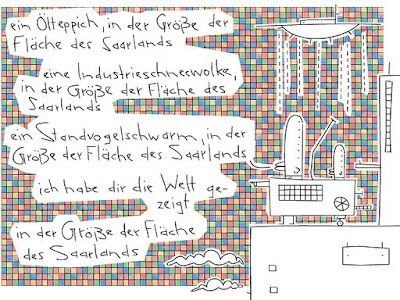 ein Ölteppich, in der Größe der
Fläche des Saarlands
eine Industrieschneewolke,
in der Größe der Fläche des
Saarlands
ein Standvogelschwarm, in der
Größe der Fläche des Saarlands
ich habe dir die Welt ge-
zeigt
in der Größe der Fläche
des Saarlands